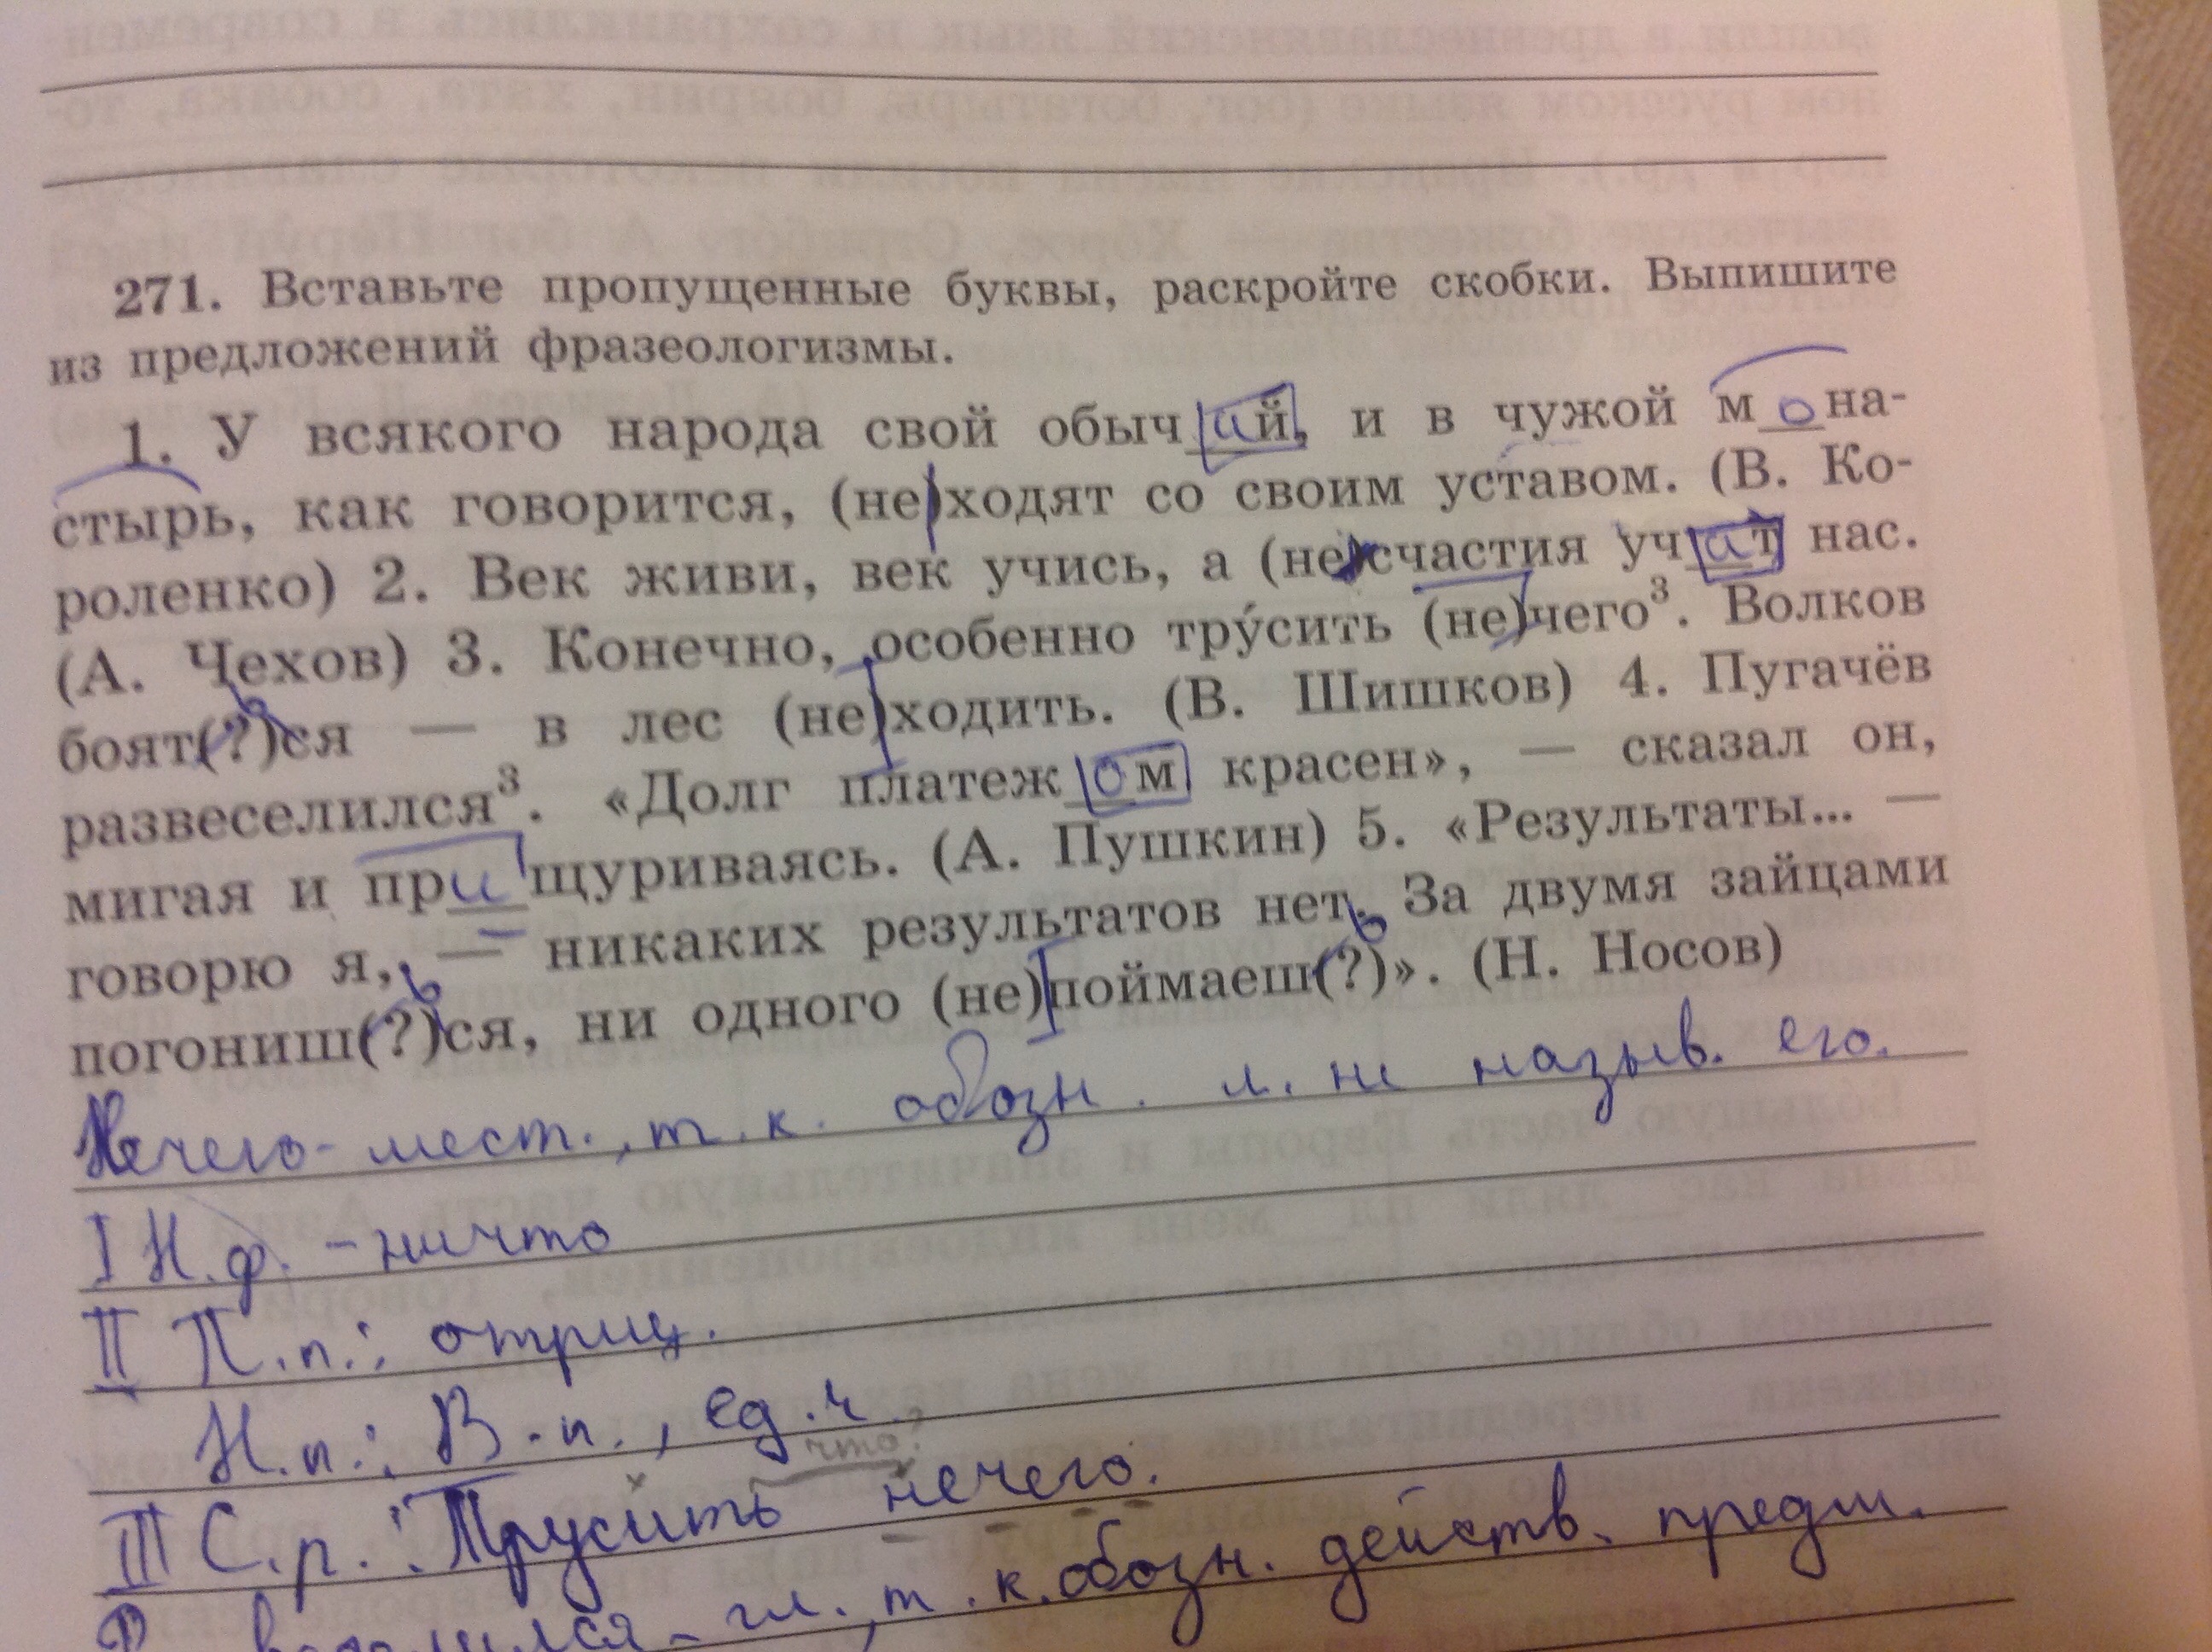 271. Вставьте пропущенные буквы, раскройте скобки. Выпишите
из предложений фразеологизмы.
1. У всякого народа свой обычай, и в чужой мона-
стырь, как говорится, (не)ходят со своим уставом. (В. Ко-
роленко) 2. Век живи, век учись, а (не)счастия учат нас.
(А. Чехов) 3. Конечно, особенно тру́сить (не)чего³. Волков
боят(?)ься — в лес (не)ходить. (В. Шишков) 4. Пугачёв
развеселился³. «Долг платежом красен», — сказал он,
мигая и прищуриваясь. (А. Пушкин) 5. «Результаты... —
говорю я, — никаких результатов нет. За двумя зайцами
погониш(?)ься, ни одного (не)поймаеш(?)ь». (Н. Носов)
Нечего - мест., т.к. обозн. и не назыв. его.
I Н.ф. - ничто
II П.п.: отриц.
Н.п.: В.п., ед.ч.
что?
III С.р.: Трусить нечего.
гл., т.к. обозн. действ. предм.